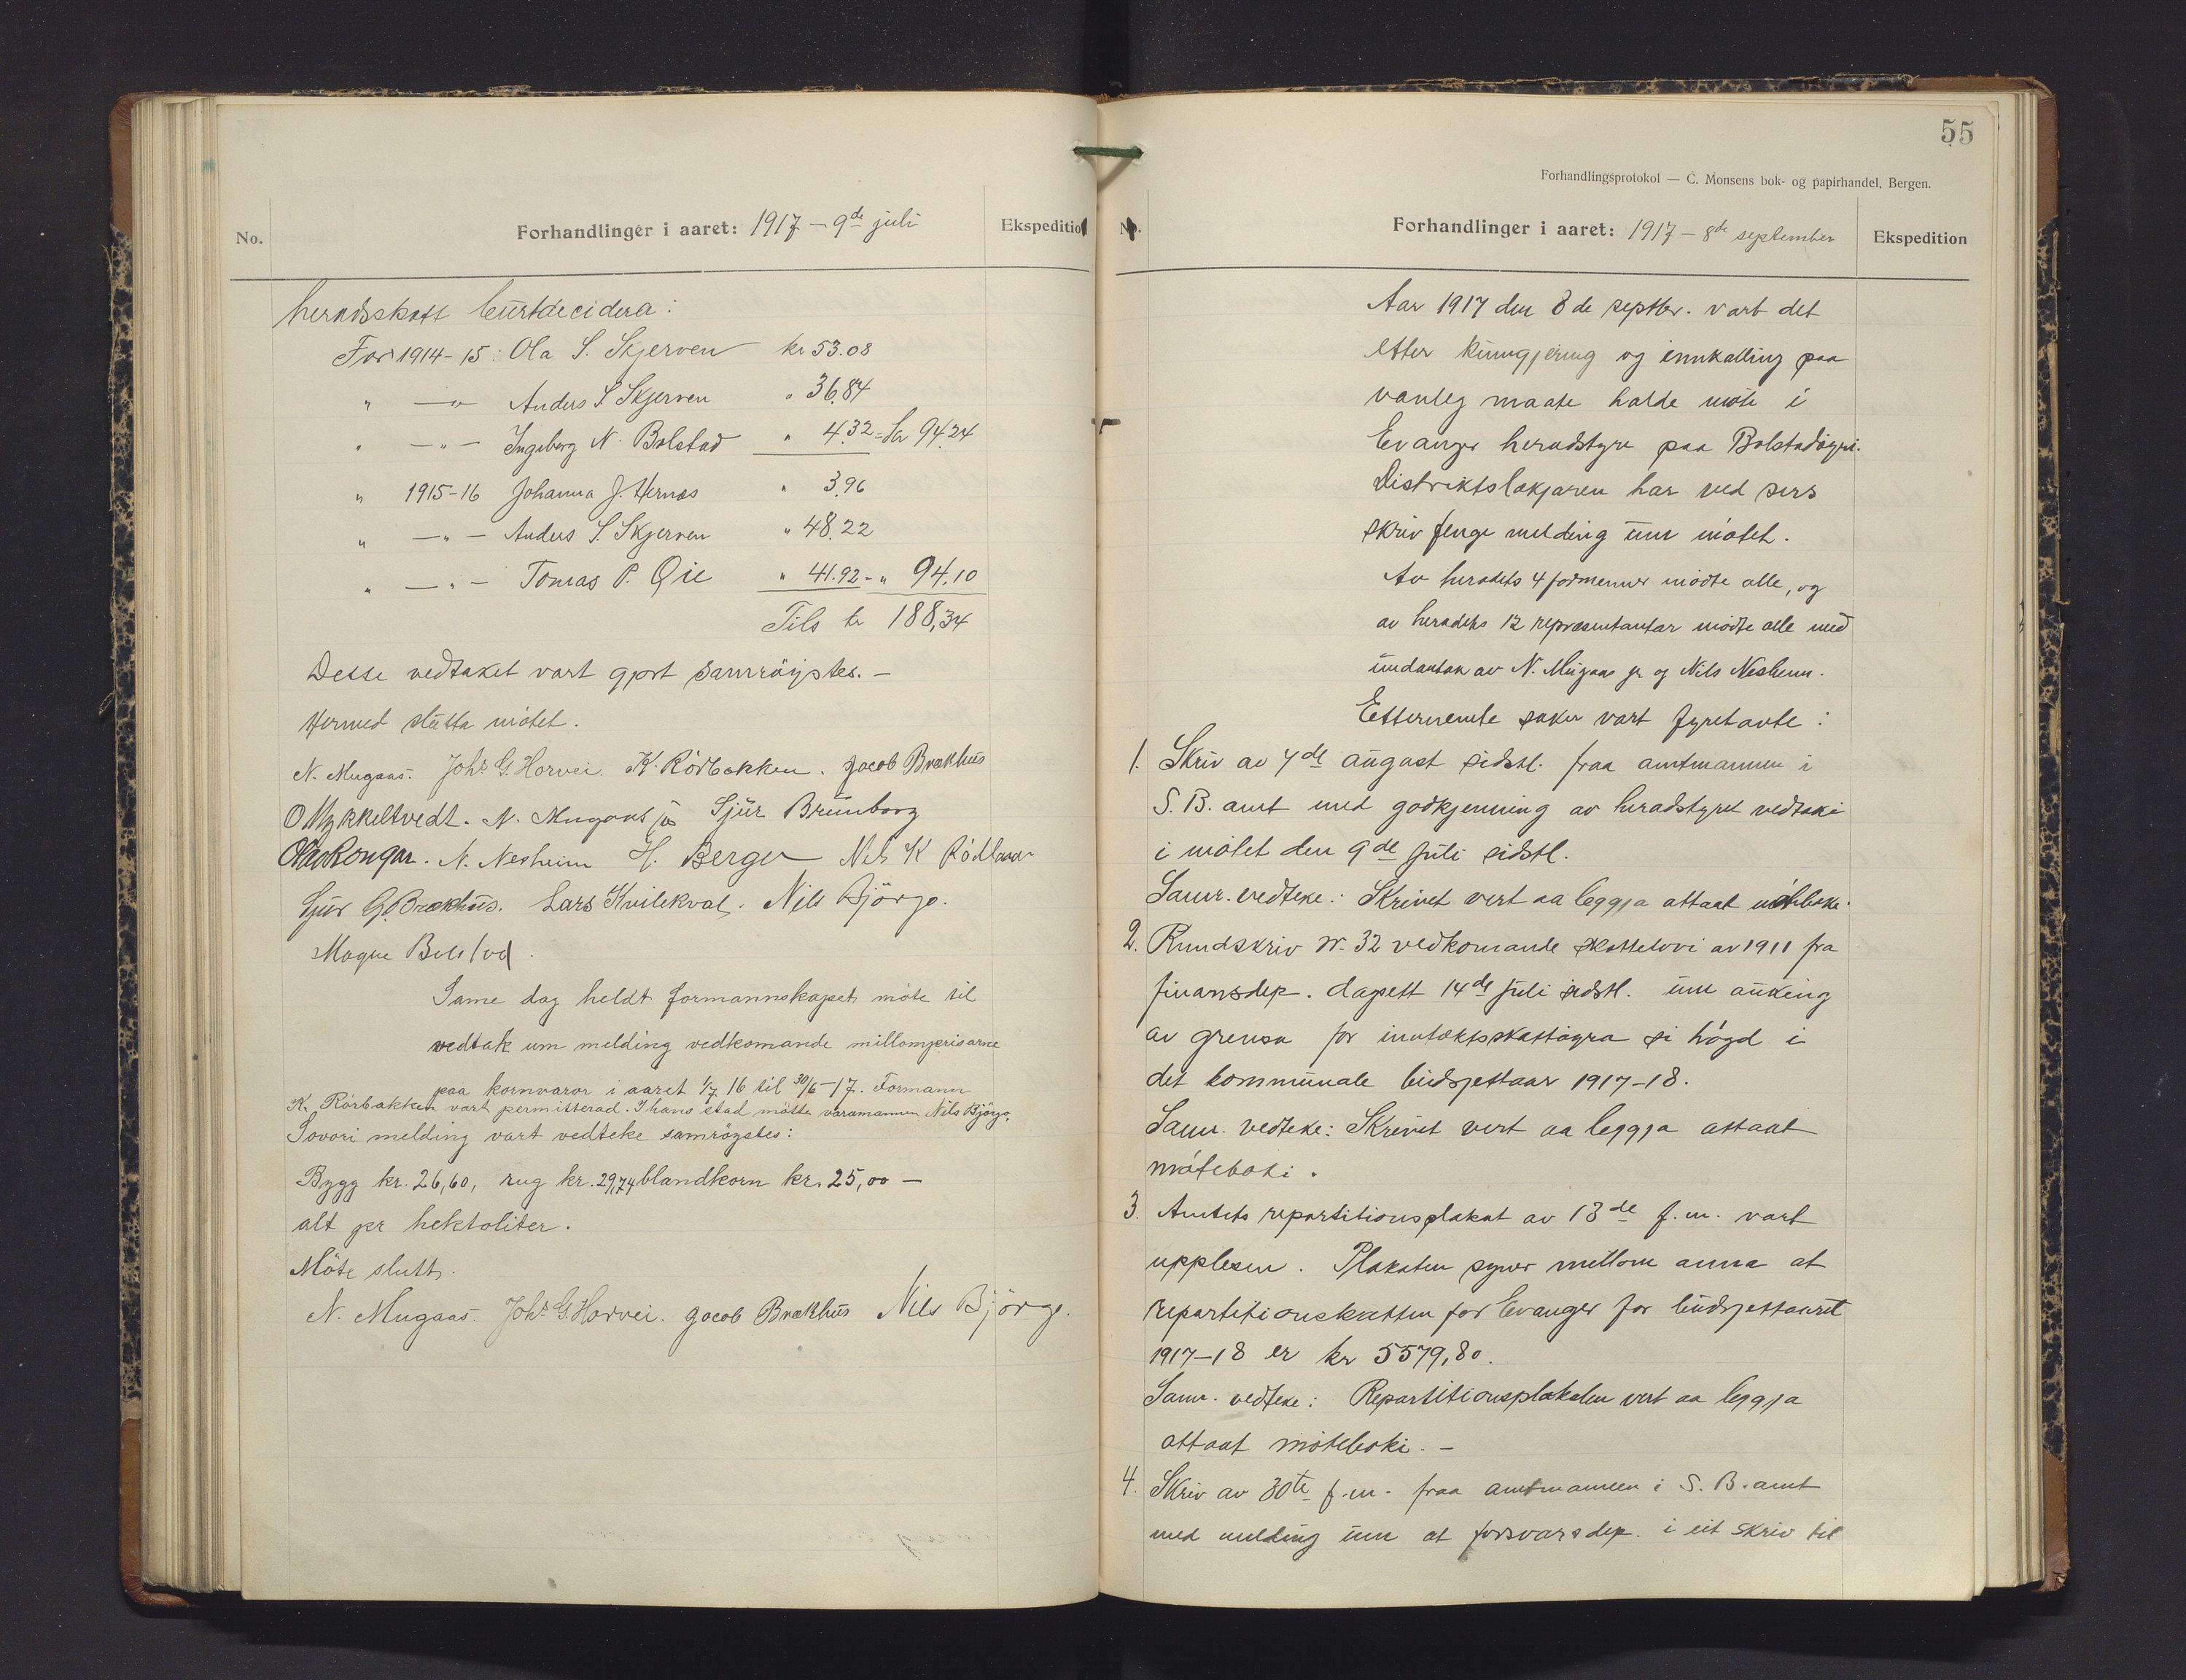 No.
Forhandlinger i aaret: 1917 — 9de juli
Ekspedition
heradsskatt burtdecidera:
For 1914-15: Ola S. Skjerven kr 53.08
" —"— Anders S. Skjerven " 36.84
" —"— Ingeborg N. Bolstad " 4.32 = kr 94.24
" 1915-16 Johanna J. Hernes " 3.96
" —"— Anders S. Skjerven " 48.22
" —"— Tomas P. Öie " 41.92 - " 94.10
Tils kr 188,34
Desse vedtaket vart gjort samröystes. —
Hermed slutta mötet.
N. Mugaas. Johs G. Horvei. K. Rörbakken. Jacob Brækhus
O Mykkeltvedt. N. Mugaas jr Sjur Brunborg
Olav Rongar. N. Nesheim H. Berger Nils K Rödland
Sjur G. Brækhus. Lars Kvilekval. Nils Björgo.
Magne Bolstad.
Same dag heldt formannskapet möte til
vedtak um melding vedkomande millomprisarne
paa kornvaror i aaret 1/7 16 til 30/6-17. Formann
K. Rörbakken vart permitterad. I hans stad mötte varamannen Nils Björgo.
Sovori melding vart vedteke samröystes:
Bygg kr. 26,60, rug kr. 29,74 blandkorn kr. 25,00 —
alt pr hektoliter.
Möte slutt.
N. Mugaas. Johs G. Horvei. Jacob Brækhus Nils Björgo.
55
Forhandlingsprotokol — C. Monsens bok- og papirhandel, Bergen.
No.
Forhandlinger i aaret: 1917 — 8de september
Ekspedition
Aar 1917 den 8de septbr. vart det
etter kunngjering og innkalling paa
vanleg maate halde möte i
Evanger heradstyre paa Bolstadöyri.
Distriktslækjaren har ved sers
skriv fenge melding um mötet.
Av heradets 4 formenner mödte alle, og
av heradets 12 repræsentantar mödte alle med
undantak av N. Mugaas jr og Nils Nesheim.
Etternemde saker vart fyretavte:
1. Skriv av 4de august sidstl. fraa amtmannen i
S. B. amt med godkjenning av heradstyret vedtak i
i mötet den 9de juli sidstl.
Samr. vedteke: Skrivet vert aa leggja attaat möteboki.
2. Rundskriv nr. 32 vedkomande skattelovi av 1911 fra
finansdep. dagsett 14de juli sidstl. um auking
av grensa for inntektsskattöyra si högd i
det kommunale budsjettaar 1917-18.
Samr. vedteke: Skrivet vert aa leggja attaat
möteboki.
3. Amtets repartitionsplakat av 13de f.m. vart
upplesen. Plakaten syner millom anna at
repartitionskatten for Evanger for budsjettaaret
1917-18 er kr 5579,80.
Samr. vedteke: Repartitionsplakaten vert aa leggja
attaat möteboki. —
4. Skriv av 30te f.m. fraa amtmannen i S. B. amt
med melding um at forsvarsdep. i eit skriv til